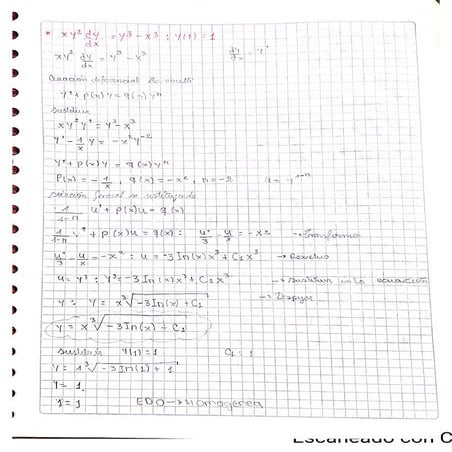 * xy² dy/dx = y³ - x³ ; y(1) = 1
xy² dy/dx = y³ - x³ dy/dx = y'
Ecuación diferencial Bernoulli
y' + p(x)y = q(x)yⁿ
Sustituir
xy²y' = y³ - x³
y' - 1/x y = -x²y⁻²
y' + p(x)y = q(x)yⁿ
P(x) = -1/x , q(x) = -x², n = -2 u = y¹⁻ⁿ
solución General se sustituyendo
1/1-n u' + p(x)u = q(x)
1/1-n u' + p(x)u = q(x) : u'/3 - u/x = -x² → Transforma
u'/3 - u/x = -x² : u = -3 In(x)x³ + C₁x³ → Resuelvo
u = y³ : y³ = -3 In(x)x³ + C₁x³ → Sustituir en la ecuación
y = y = x ³√-3In(x) + C₁ → Despejar
y = x ³√-3In(x) + C₁
Sustituir y(1) = 1 C₁ = 1
y = 1 ³√-3In(1) + 1
y = 1.
1 = 1 EDO → Homogénea
Escaneado con C